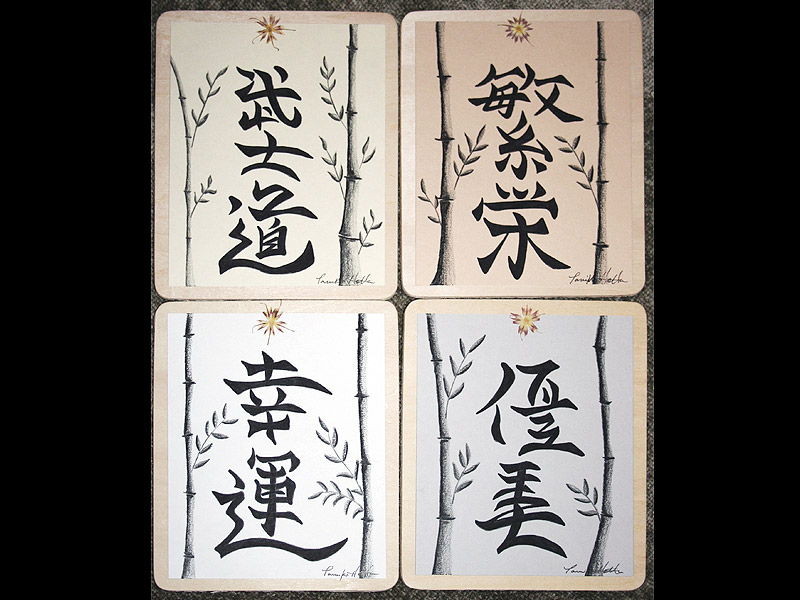 武士道
繁栄
幸運
優美